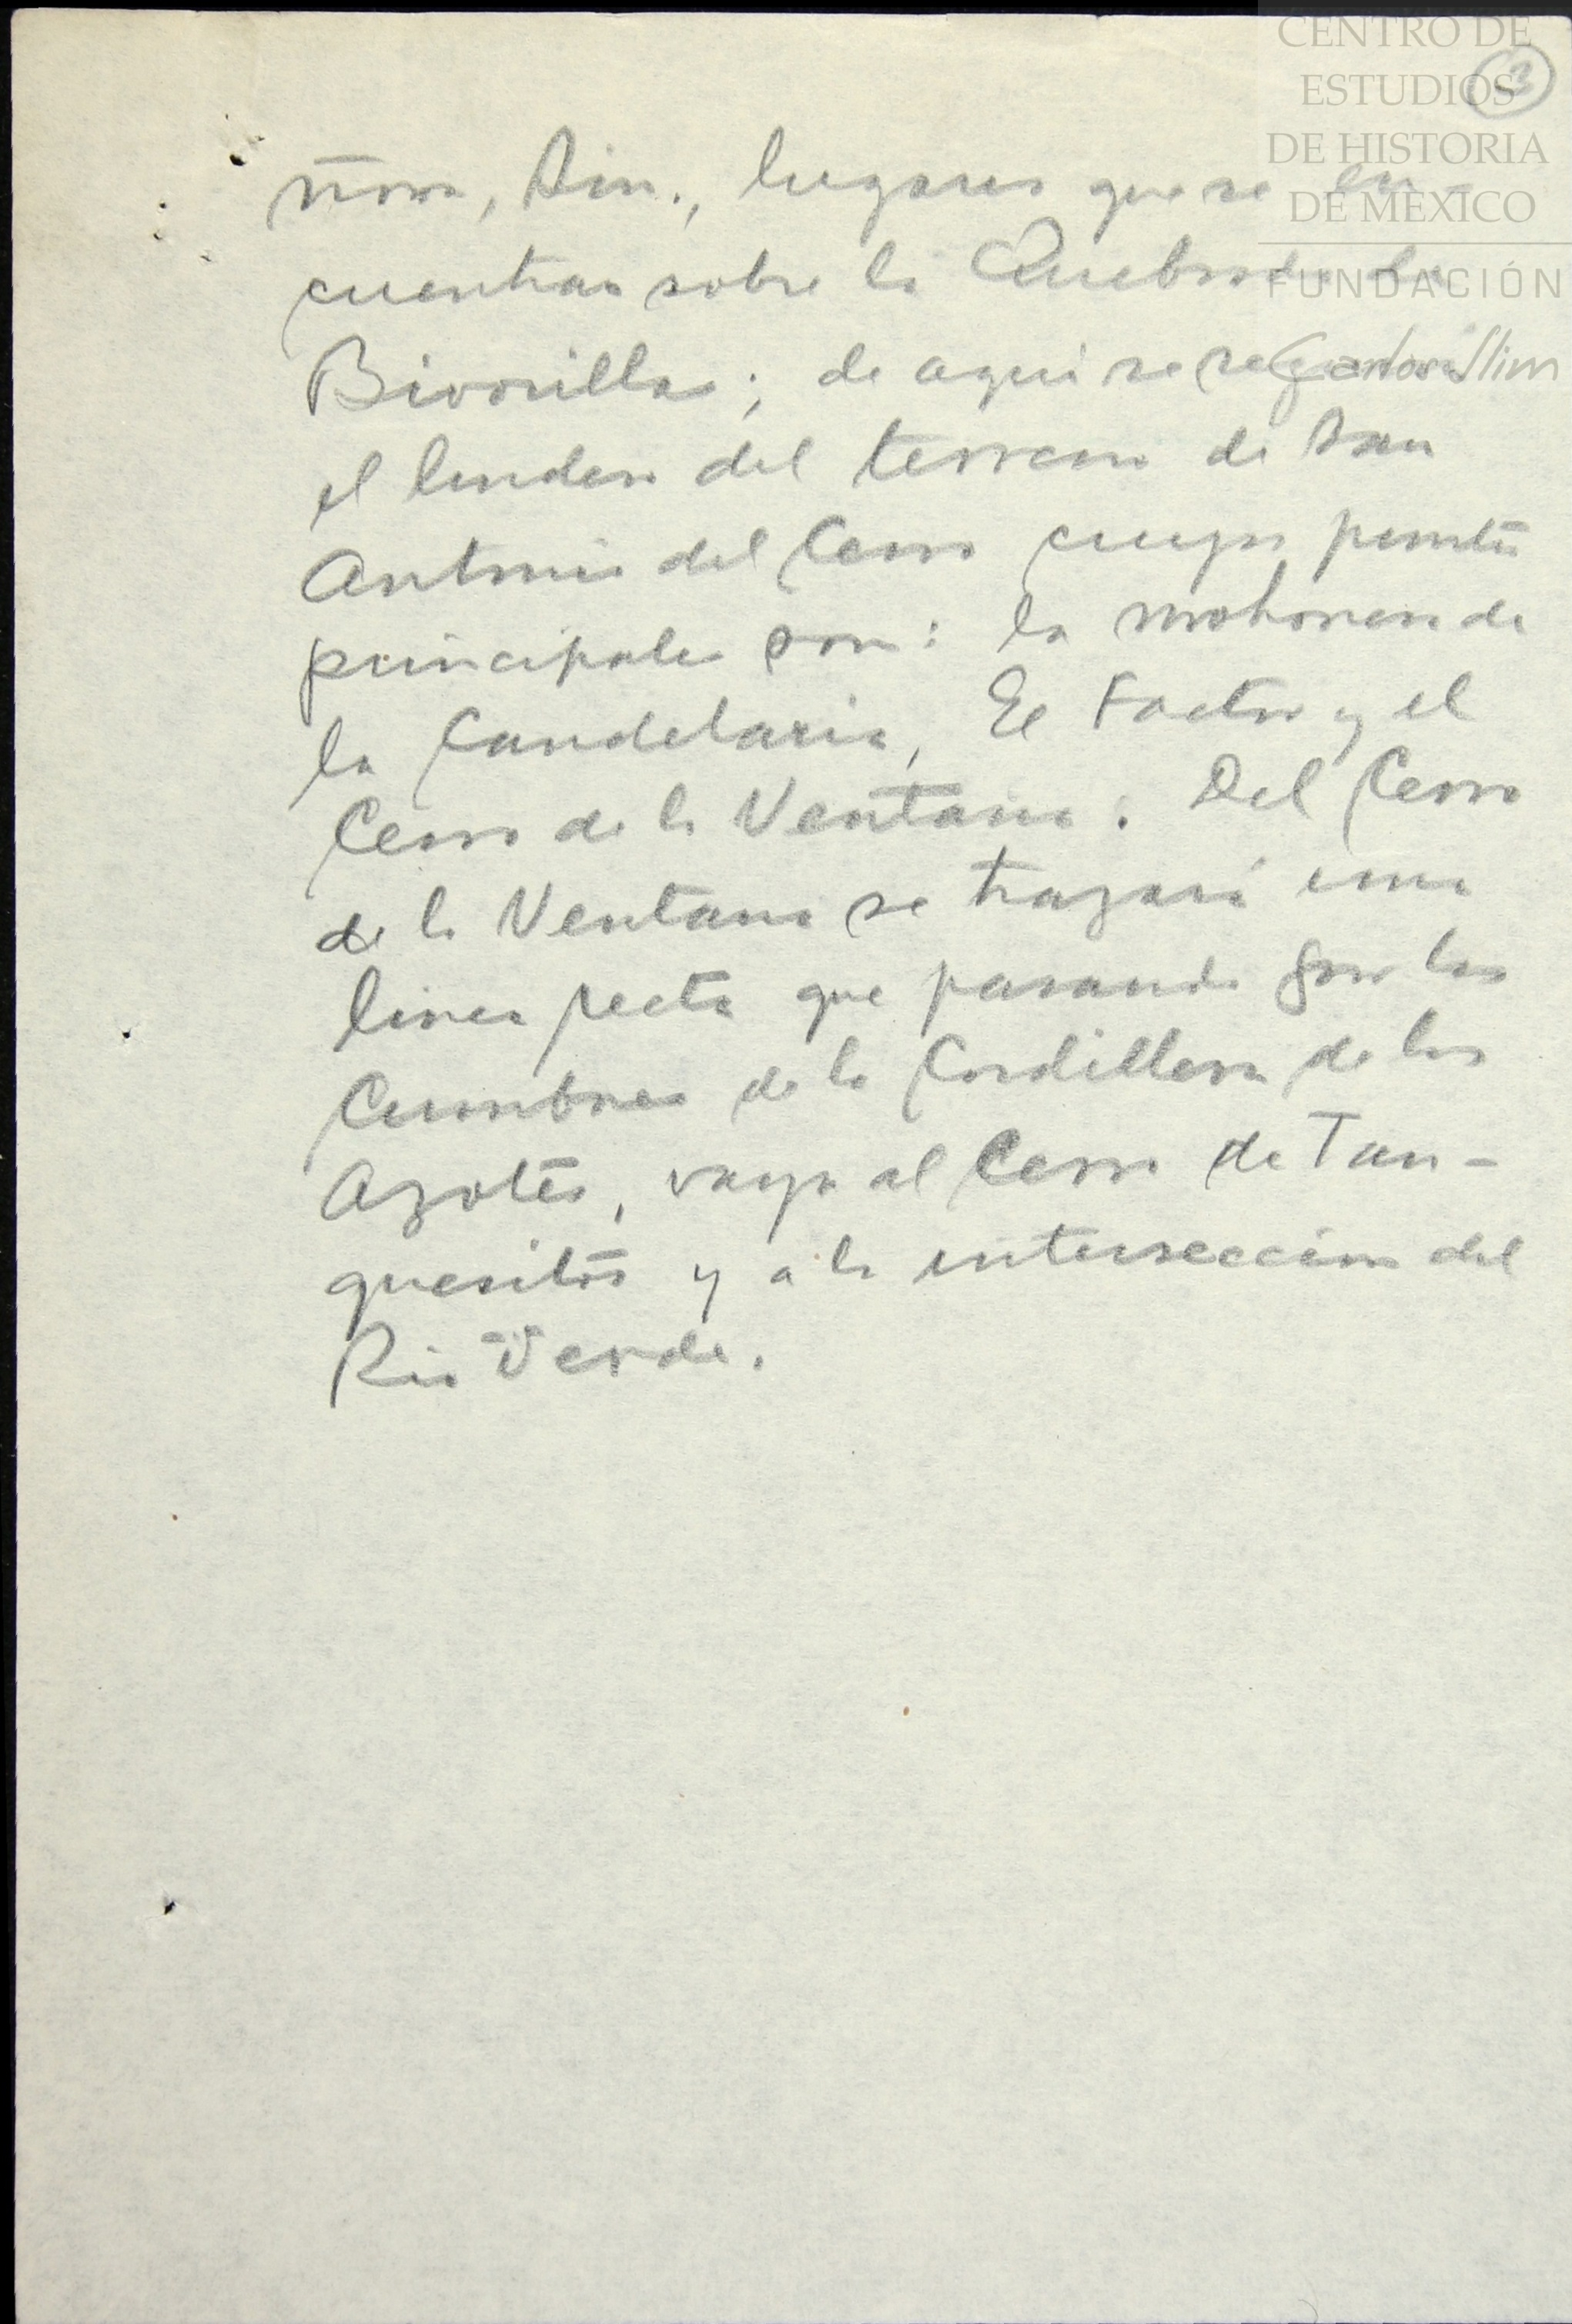 CENTRO DE
ESTUDIOS
DE HISTORIA
DE MÉXICO
FUNDACIÓN
Carlos Slim
3
ñora, Sin., lugares que se en-
cuentran sobre la Quebrada de
Bivorillas; de aquí se
el lindero del terreno de San
Antonio del Cerro cuyos puntos
principales son: la mohonera de
la Candelaria, El Factor y el
Cerro de la Ventana. Del Cerro
de la Ventana se trazará una
linea recta que pasando por las
Cumbres de la Cordillera de los
Azotes, vaya al Cerro de Tan-
quesitos y a la intersección del
Rio Verde.